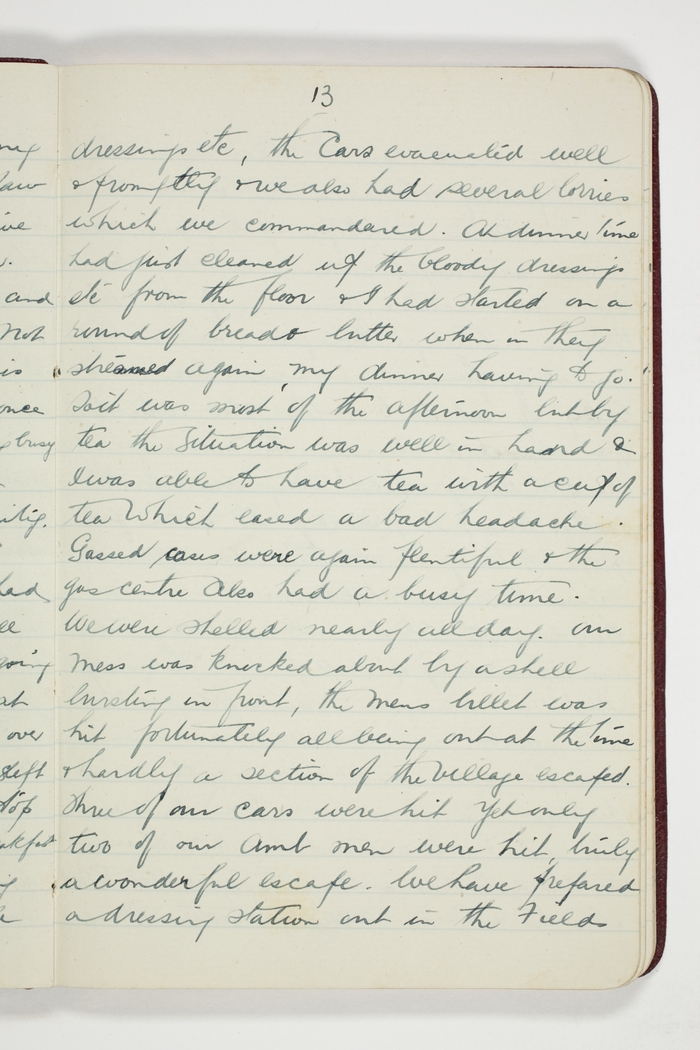 13
dressings etc, the Cars evacuated well
& promptly & we also had several lorries
which we commandared. At dinner time
had just cleaned up the bloody dressings
etc from the floor & I had started on a
round of bread & butter when in they
streamed again, my dinner having to go.
So it was most of the afternoon but by
tea the Situation was well in hand &
I was able to have tea with a cup of
tea which eased a bad headache.
Gassed cases were again plentiful & the
gas centre also had a busy time.
We were shelled nearly all day. our
Mess was knocked about by a shell
bursting in front, the mens billet was
hit fortunately all being out at the time
& hardly a section of the village escaped.
three of our cars were hit yet only
two of our Amb men were hit, truly
a wonderful escape. We have prepared
a dressing station out in the Fields
ive
and
not
is
once
busy
had
going
at
over